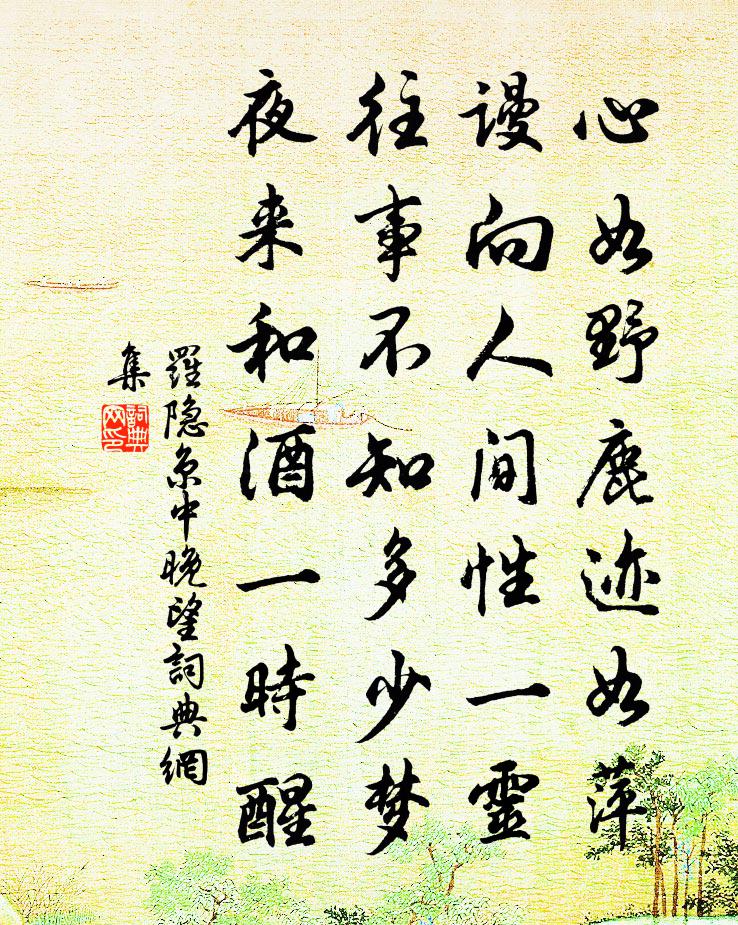 心如野鹿迹如萍
谩向人间性一靈
往事不知多少梦
夜来和酒一時醒
羅隐京中晚望詞典網
集
詞典
网印